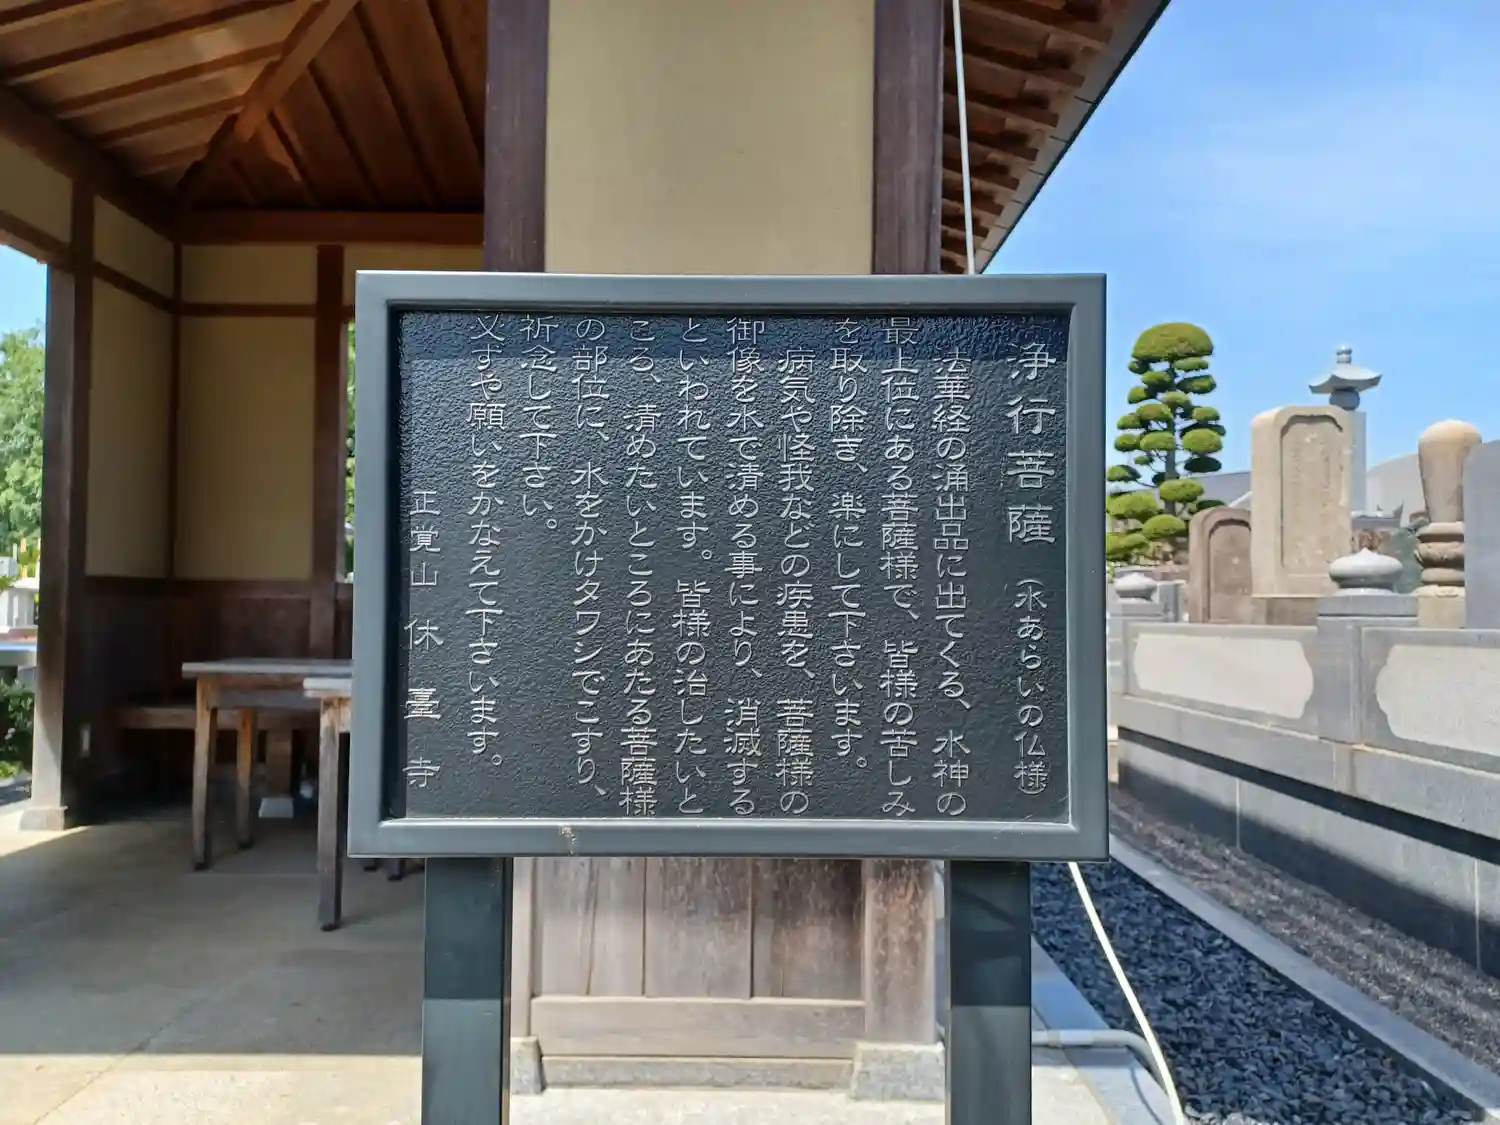 浄行菩薩（水あらいの仏様）
法華経の涌出品に出てくる、水神の
最上位にある菩薩様で、皆様の苦しみ
を取り除き、楽にして下さいます。
病気や怪我などの疾患を、菩薩様の
御像を水で清める事により、消滅する
といわれています。皆様の治したいと
ころ、清めたいところにあたる菩薩様
の部位に、水をかけタワシでこすり、
祈念して下さい。
又ずや願いをかなえて下さいます。
正覚山休臺寺